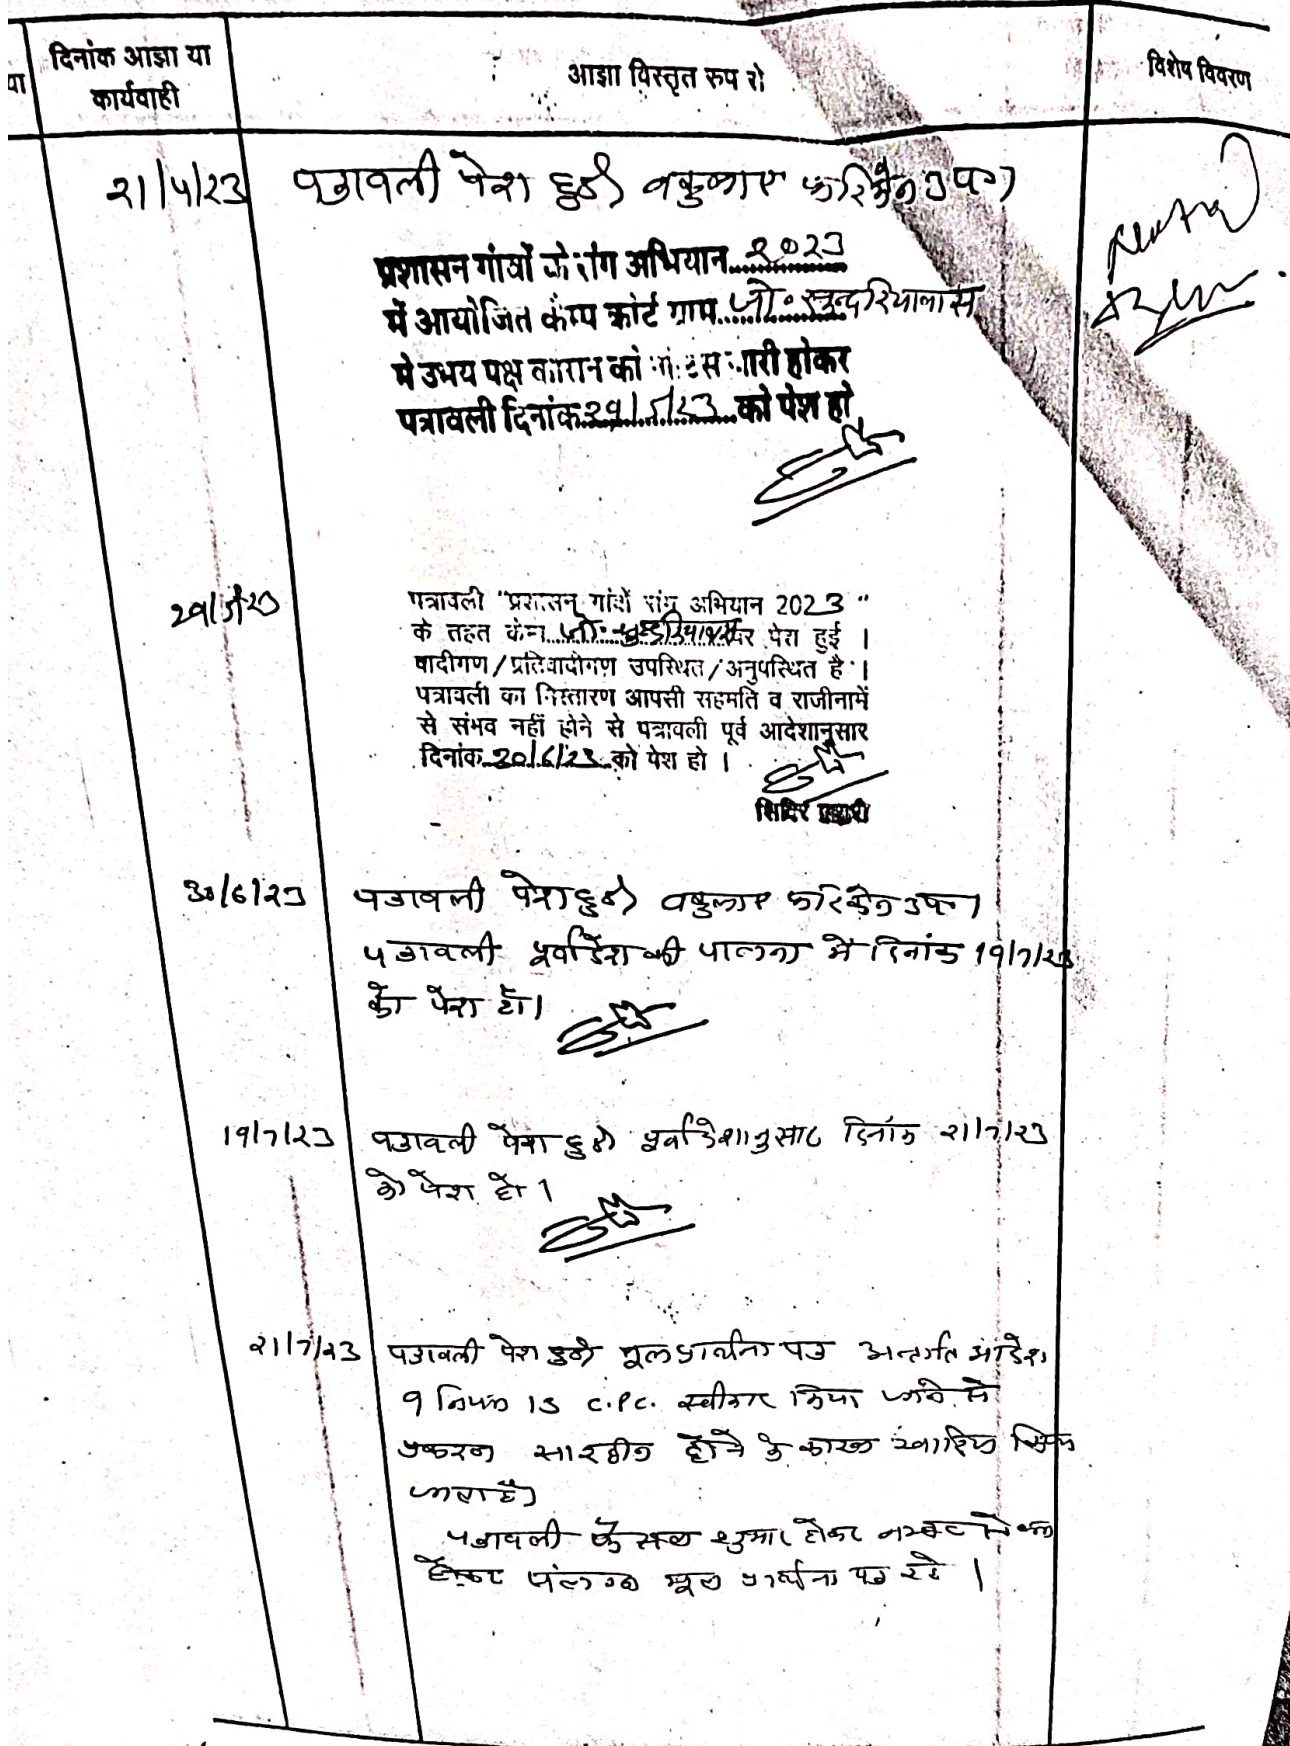 या
दिनांक आज्ञा या
कार्यवाही
आज्ञा विस्तृत रुप से
विशेष विवरण
21/4/23 पत्रावली पेश हुई। वकुलाए फरिकेन उप।
प्रशासन गांवों के संग अभियान 2023
में आयोजित कैम्प कोर्ट ग्राम जी. सुन्दरियावास
मे उभय पक्ष कारान को नोटिस जारी होकर
पत्रावली दिनांक 29/5/23 को पेश हो
29/5/23
पत्रावली "प्रशासन गांवों संग अभियान 2023"
के तहत कैम्प जी. पर पेश हुई ।
वादीगण/प्रतिवादीगण उपस्थित/अनुपस्थित है ।
पत्रावली का निस्तारण आपसी सहमति व राजीनामें
से संभव नहीं होने से पत्रावली पूर्व आदेशानुसार
दिनांक 30/6/23 को पेश हो ।
शिविर प्रभारी
30/6/23 पत्रावली पेश हुई। वकुलाए फरिकेन उप।
पत्रावली पूर्वादेश की पालना में दिनांक 19/7/23
को पेश हो।
19/7/23 पत्रावली पेश हुई। पूर्वादेशानुसार दिनांक 21/7/23
को पेश हो।
21/7/23 पत्रावली पेश हुई। मूल प्रार्थना पत्र अन्तर्गत आदेश
9 नियम 13 C.P.C. स्वीकार किया जाने से
प्रकरण सारहीन होने के कारण खारिज किया
जाता है।
पत्रावली फैसल शुमार होकर नम्बर से कम
होकर संलग्न मूल प्रार्थना पत्र रहे ।